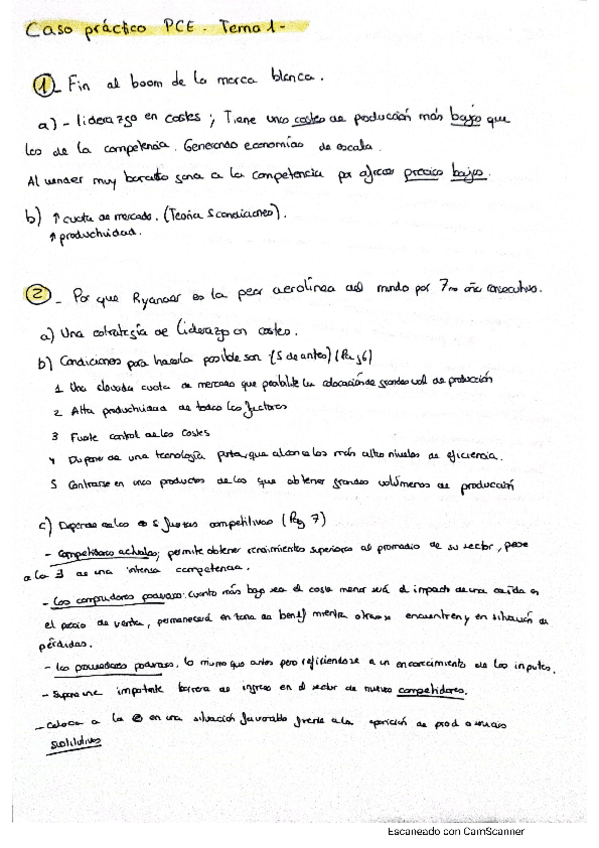 Caso práctico PCE. Tema 1-
1- Fin al boom de la marca blanca.
a) - liderazgo en costes; Tiene unos costes de producción más bajo que
los de la competencia. Generando economías de escala.
Al vender muy barato gana a la competencia por ofrecer precios bajos.
b) ↑ cuota de mercado. (Teoría 5 condiciones).
↑ productividad.
2- Por que Ryanair es la peor aerolínea del mundo por 7mo año consecutivo.
a) Una estrategia de liderazgo en costes.
b) Condiciones para hacerla posible son (5 de antes) (Pag 6)
1 Una elevada cuota de mercado que posibilite la colocación de grandes vol de producción
2 Alta productividad de todos los factores
3 Fuerte control de los costes
4 Disponer de una tecnología que alcance los más altos niveles de eficiencia.
5 Centrarse en unos productos de los que obtener grandes volúmenes de producción
c) Depende de las 5 fuerzas competitivas (Pag 7)
- Competidores actuales; permite obtener rendimientos superiores al promedio de su sector, pese
a la de una intensa competencia.
- Los compradores poderosos: cuanto más bajo sea el coste menor será el impacto de una caída en
el precio de venta, permanecerá en zona de benf mientras otros se encuentren ya en situación de
pérdidas.
- los proveedores poderosos, lo mismo que antes pero refiriéndose a un encarecimiento de los inputes.
- Supone una importante barrera de ingreso en el sector de nuevos competidores.
- Coloca a la en una situación favorable frente a la aparición de prod o servicios
sustitutivos
Escaneado con CamScanner